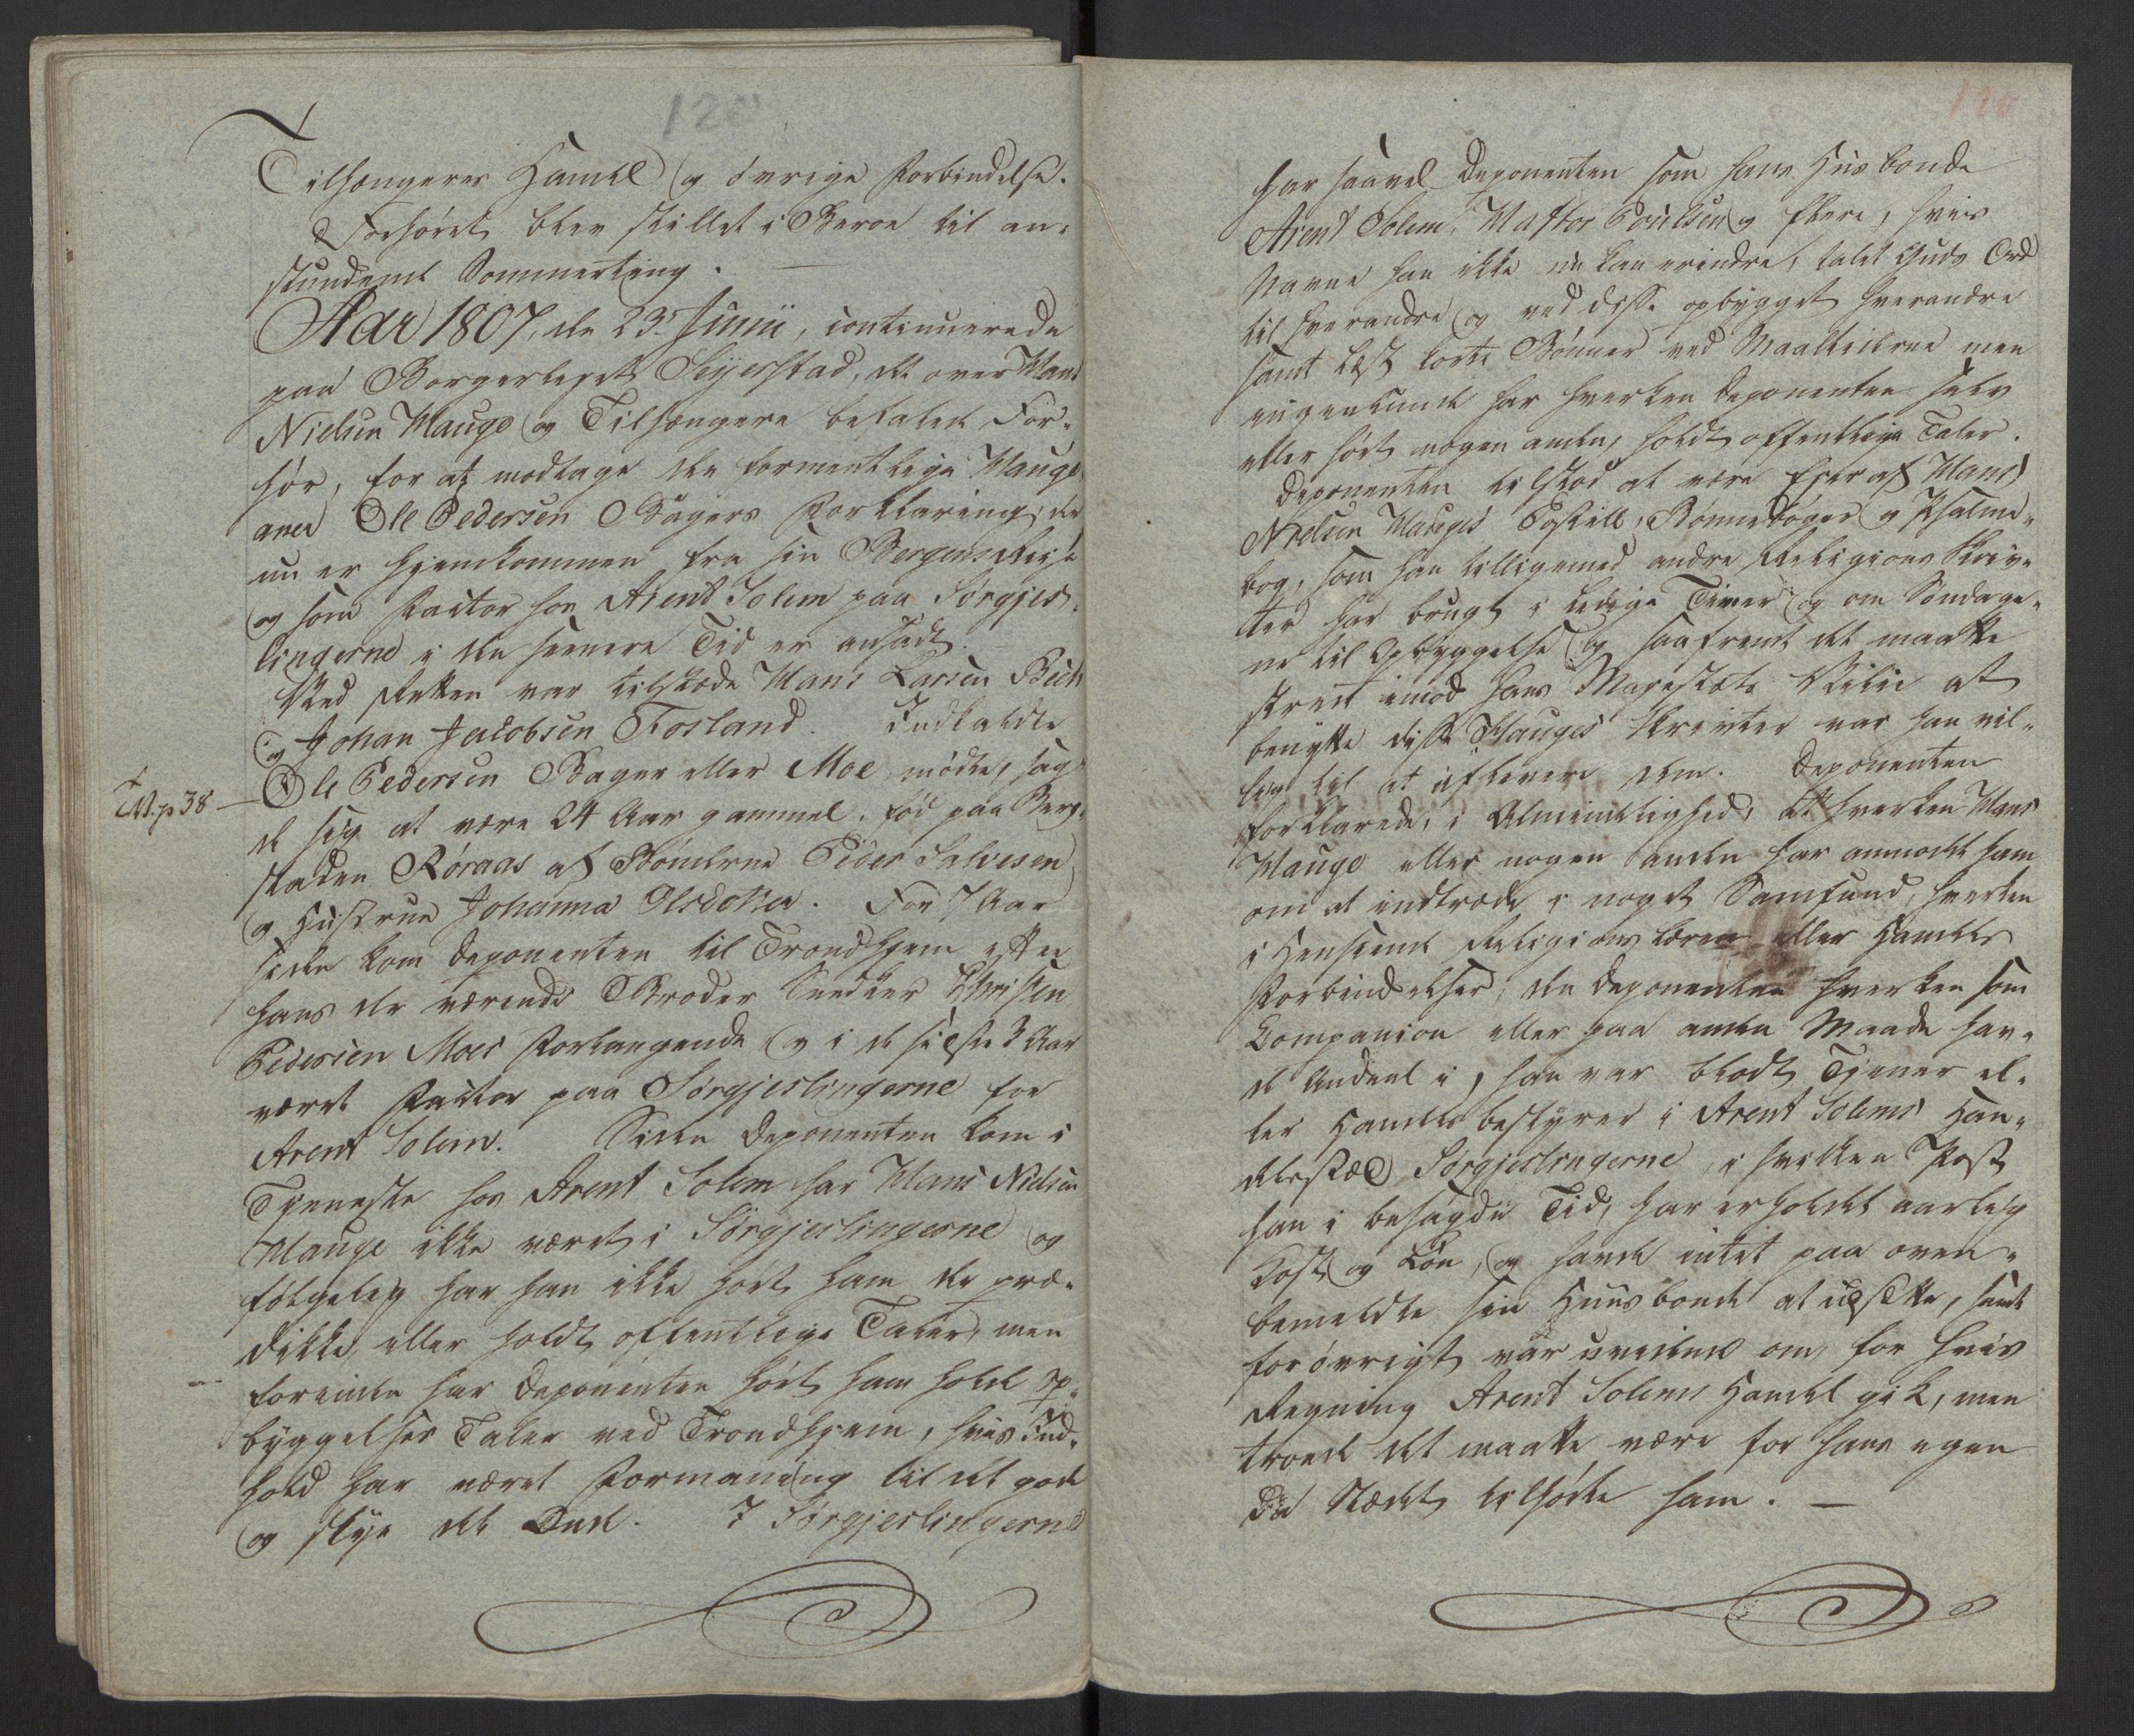 120
Tilhængeres Handel og övrige Forbindelse.
Forhöret blev stillet i Beroe til an-
stundende Sommerting.
Aar 1807, den 23de Junii, continuerede
paa Borgerleyet Seyerstad, det over Hans
Nielsen Hauge og Tilhængere befalede For-
hör, for at modtage den formentlige Haugi-
aner Ole Pedersen Bagers Forklaring, der
nu er hjemkommen fra sin Bergens Reise
og som Factor hos Arent Solem paa Sörgjes-
lingerne i den seenere Tid er ansadt.
Ved Retten var tilstæde Hans Larsen Bech
og Johan Jacobsen Fosland. Indkaldte
Ole Pedersen Bager eller Moe mödte, sag-
M. p 38
de sig at være 24 Aar gammel, föd paa Berg-
staden Röraas af Bönderne Peder Salvesen
og Hustrue Johanna Olsdotter. For 7 Aar
siden kom Deponenten til Trondhjem efter
hans der værende Broder Snedker Christen
Pedersen Moes Forlangende og i de sidste 3 Aar
været Factor paa Sörgjeslingerne for
Arent Solem. Siden Deponenten kom i
Tjeneste hos Arent Solem har Hans Nielsen
Hauge ikke været i Sörgjeslingerne og
fölgelig har han ikke hört ham der præ-
dikke, eller holdt offentlige Taler, men
forinden har Deponenten hört ham holde Op-
byggelses Taler ved Trondhjem, hvis Ind-
hold har været Formaning til det gode
og skye det Onde. I Sörgjeslingerne
120
har saavel Deponenten som hans Husbonde
Arent Solem, Mathos Poulsen og flere, hvis
Navne han ikke nu kan erindre, talet Guds Ord
til hverandre og ved disse opbygget hverandre
samt læst korte Bönner ved Maaltiderne men
ingenlunde har hverken Deponenten selv
eller hört nogen anden, holdt offentlige Taler.
Deponenten tilstod at være Eier af Hans
Nielsen Hauges Postill, Bönneböger og Psalme-
bog, som han tilligemed andre Religions Skriv-
ter har brugt i ledige Timer og om Söndage-
ne til Opbyggelse og saafremt det maatte
stride imod Hans Majestæts Villie at
benytte disse Hauges Skrivter var han vil-
lig til at aflevere dem. Deponenten
forklarede i Almindelighed, at hverken Hans
Hauge eller nogen anden har anmodet ham
om at indtræde i noget Samfund, hverken
i Henseende Religions læren eller Handels
Forbindelser, den Deponenten hverken som
Companion eller paa anden Maade hav-
de Andeel i, han var blodt Tjener el-
ler Handels bestyrer i Arent Solems Han-
delssted Sörgjeslingerne, i hvilken Post
han i besagde Tid, har erholdet aarlig
Kost og Lön, og havde intet paa oven-
bemeldte sin Huusbonde at udsette, samt
forövrigt var uvidende om, for hvis
Regning Arent Solems Handel gik, men
troede det maatte være for hans egen
da Stædet tilhörte ham.